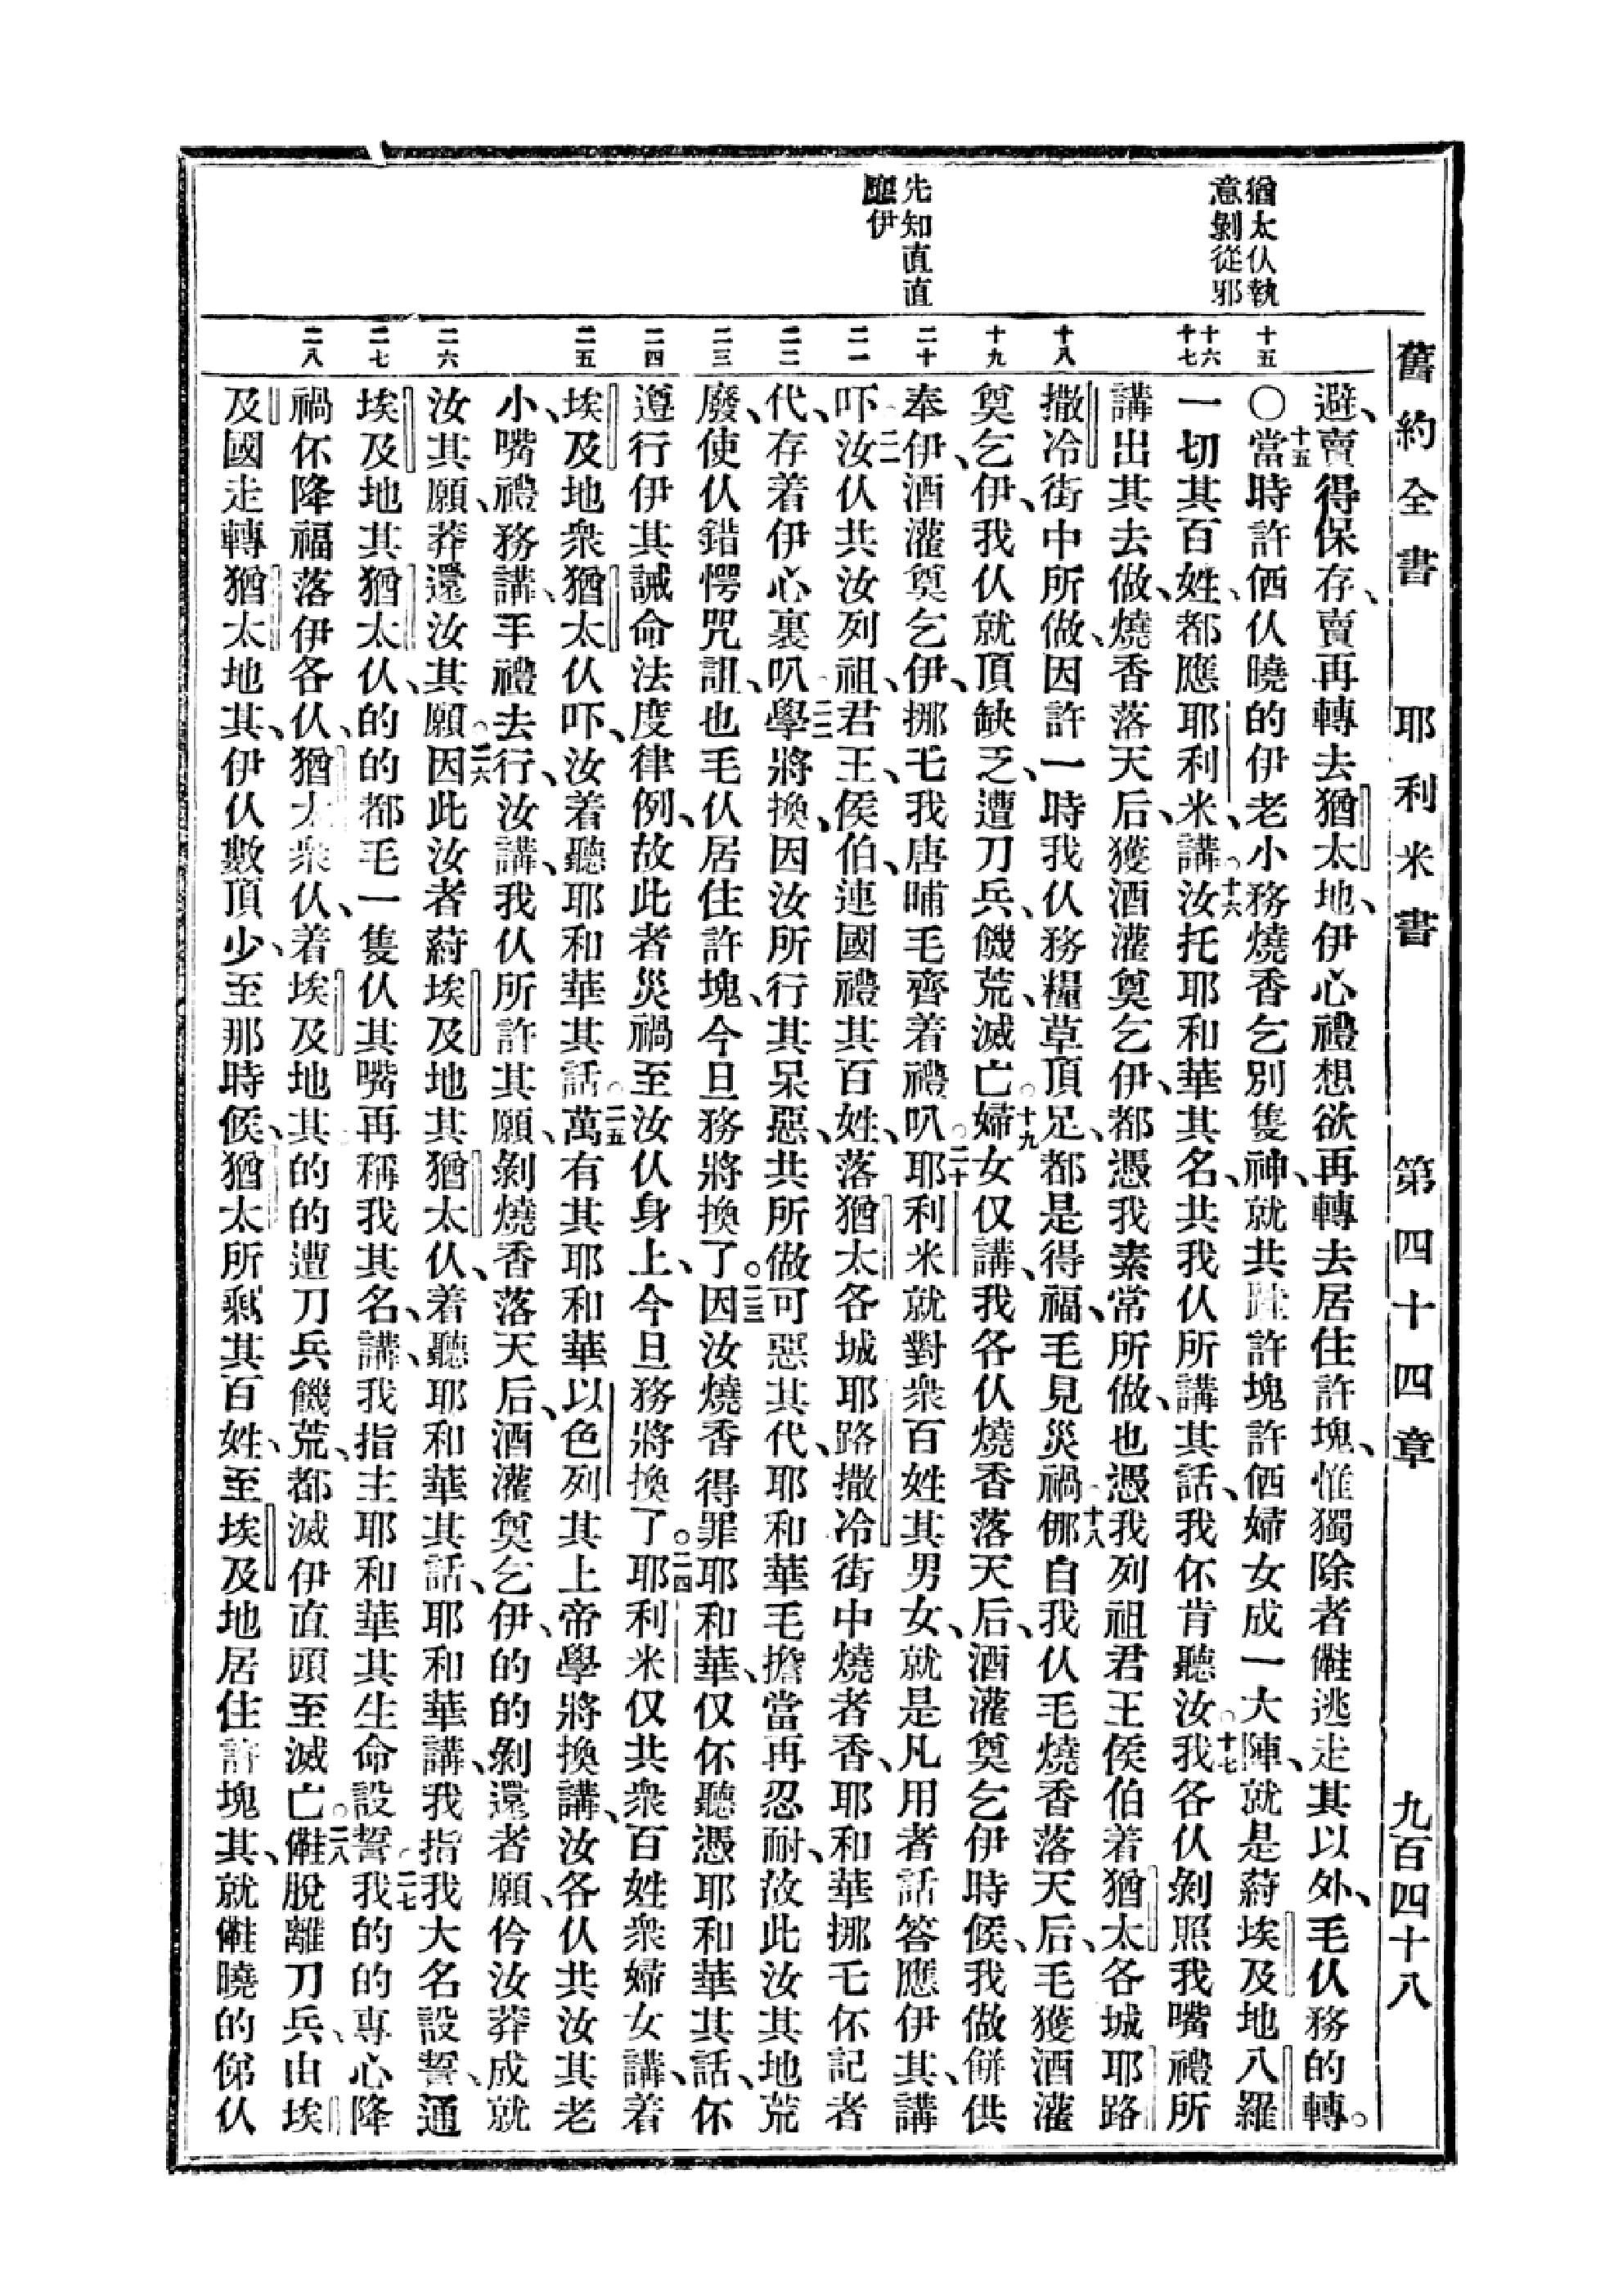 舊約全書 耶利米書 第四十四章 九百四十八
猶太仈執
意剝從邪
先知直直
應伊
十五
十六
十七
十八
十九
二十
二一
二二
二三
二四
二五
二六
二七
二八
避、賣得保存、賣再轉去猶太地、伊心禮想欲再轉去居住許塊、惟獨除者㒕逃走其以外、毛仈務的轉。
〇十五當時許㑚仈曉的伊老小務燒香乞別隻神、就共許塊許㑚婦女成一大陣、就是蒞埃及地八羅
一切其百姓、都應耶利米講。十六汝托耶和華其名、共我仈所講其話、我伓肯聽汝。十七我各仈剝照我嘴禮所
講出其去做、燒香落天后、獲酒灌奠乞伊、都憑我素常所做、也憑我列祖君王侯伯着猶太各城耶路
撒冷街中所做、因許一時我仈務糧草頂足、都是得福、毛見災禍。十八㑚自我仈毛燒香落天后、毛獲酒灌
奠乞伊、我仈就頂缺乏、遭刀兵、饑荒、滅亡。十九婦女仅講、我各仈燒香落天后、酒灌奠乞伊時候、我做餅供
奉伊、酒灌奠乞伊、挪乇我唐晡毛齊着禮叭。二十耶利米就對衆百姓其男女、就是凡用者話答應伊其、講
吓、二一汝仈共汝列祖、君王、侯伯、連國禮其百姓、落猶太各城耶路撒冷街中燒者香、耶和華挪乇伓記者
代、存着伊心裏叭、二二學將換、因汝所行其呆惡、共所做可惡其代、耶和華毛擔當再忍耐、故此汝其地荒
廢、使仈錯愕咒詛、也毛仈居住許塊、今旦務將換了。二三因汝燒香得罪耶和華、仅伓聽憑耶和華其話、伓
遵行伊其誡命法度律例、故此者災禍至汝仈身上、今旦務將換了。二四耶利米仅共衆百姓衆婦女講、着
埃及地衆猶太仈吓、汝着聽耶和華其話。二五萬有其耶和華以色列其上帝學將換講、汝各仈共汝其老
小、嘴禮務講、手禮去行、汝講、我仈所許其願、剝燒香落天后、酒灌奠乞伊、的的剝還者願、仱汝莽成就
汝其願、莽還汝其願。二六因此汝者蒞埃及地其猶太仈、着聽耶和華其話、耶和華講、我指我大名設誓、通
埃及地其猶太仈、的的都毛一隻仈其嘴再稱我其名、講、我指主耶和華其生命設誓。二七我的的專心降
禍伓降福落伊各仈、猶太衆仈、着埃及地其的的遭刀兵饑荒、都滅伊直頭至滅亡。二八㒕脫離刀兵、由埃
及國走轉猶太地其、伊仈數頂少、至那時候、猶太所剩其百姓、至埃及地居住許塊其、就㒕曉的㑚仈